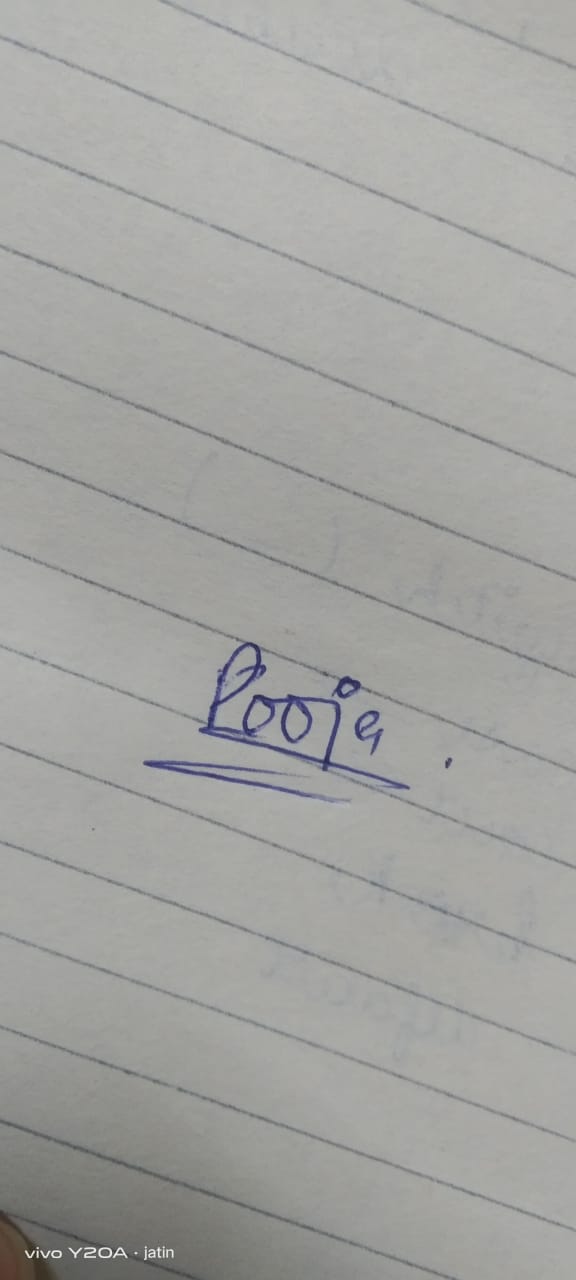 Pooja.
vivo Y20A · jatin